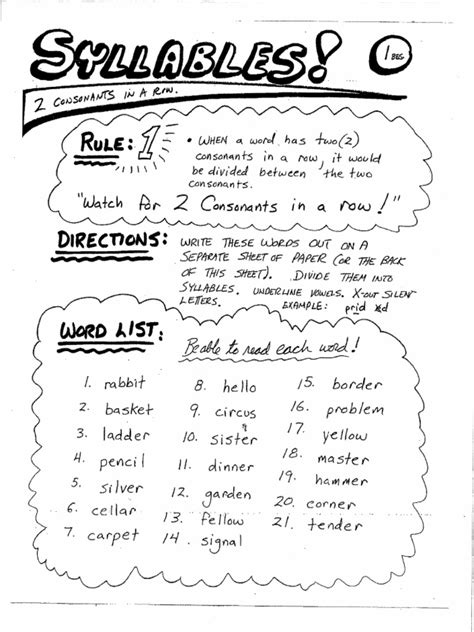 SYLLABLES! 1 BEG.
2 CONSONANTS IN A ROW.
RULE: 1
• WHEN a word has two(2)
consonants in a row, it would
be divided between the two
consonants.
"Watch for 2 Consonants in a row!"
DIRECTIONS: WRITE THESE WORDS OUT ON A
SEPARATE SHEET OF PAPER (OR THE BACK
OF THIS SHEET). DIVIDE THEM INTO
SYLLABLES. UNDERLINE VOWELS. X-OUT SILENT
LETTERS. EXAMPLE:
WORD LIST: Be able to read each word!
1. rabbit
2. basket
3. ladder
4. pencil
5. silver
6. cellar
7. carpet
8. hello
9. circus
10. sister
11. dinner
12. garden
13. fellow
14. signal
15. border
16. problem
17. yellow
18. master
19. hammer
20. corner
21. tender